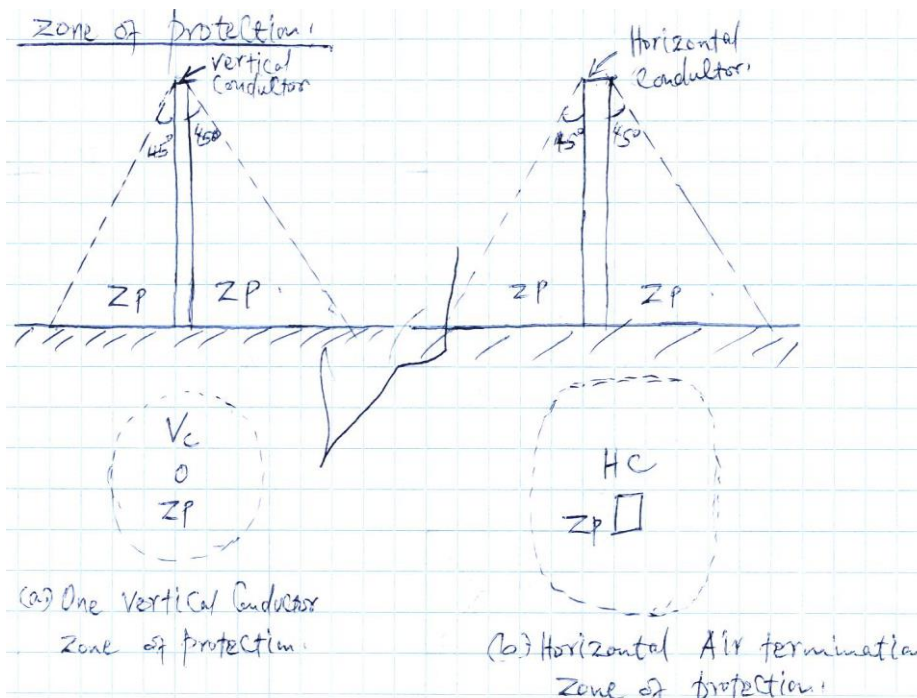 Zone of protection.
Vertical
Conductor
45° 45°
ZP ZP
Horizontal
Conductor.
45° 45°
ZP ZP
Vc
O
ZP
HC
ZP
(a) One Vertical Conductor
Zone of protection.
(b) Horizontal Air termination
Zone of protection.